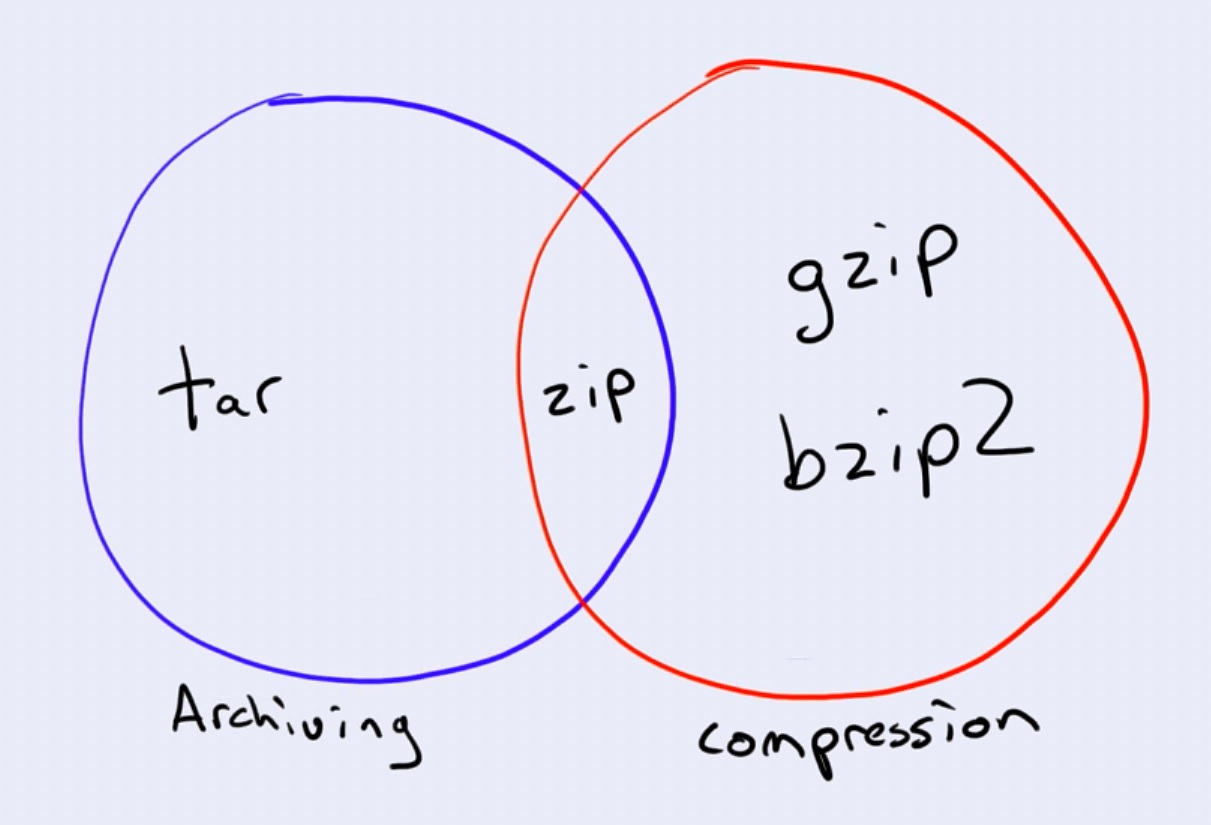 tar
zip
gzip
bzip2
Archiving
compression